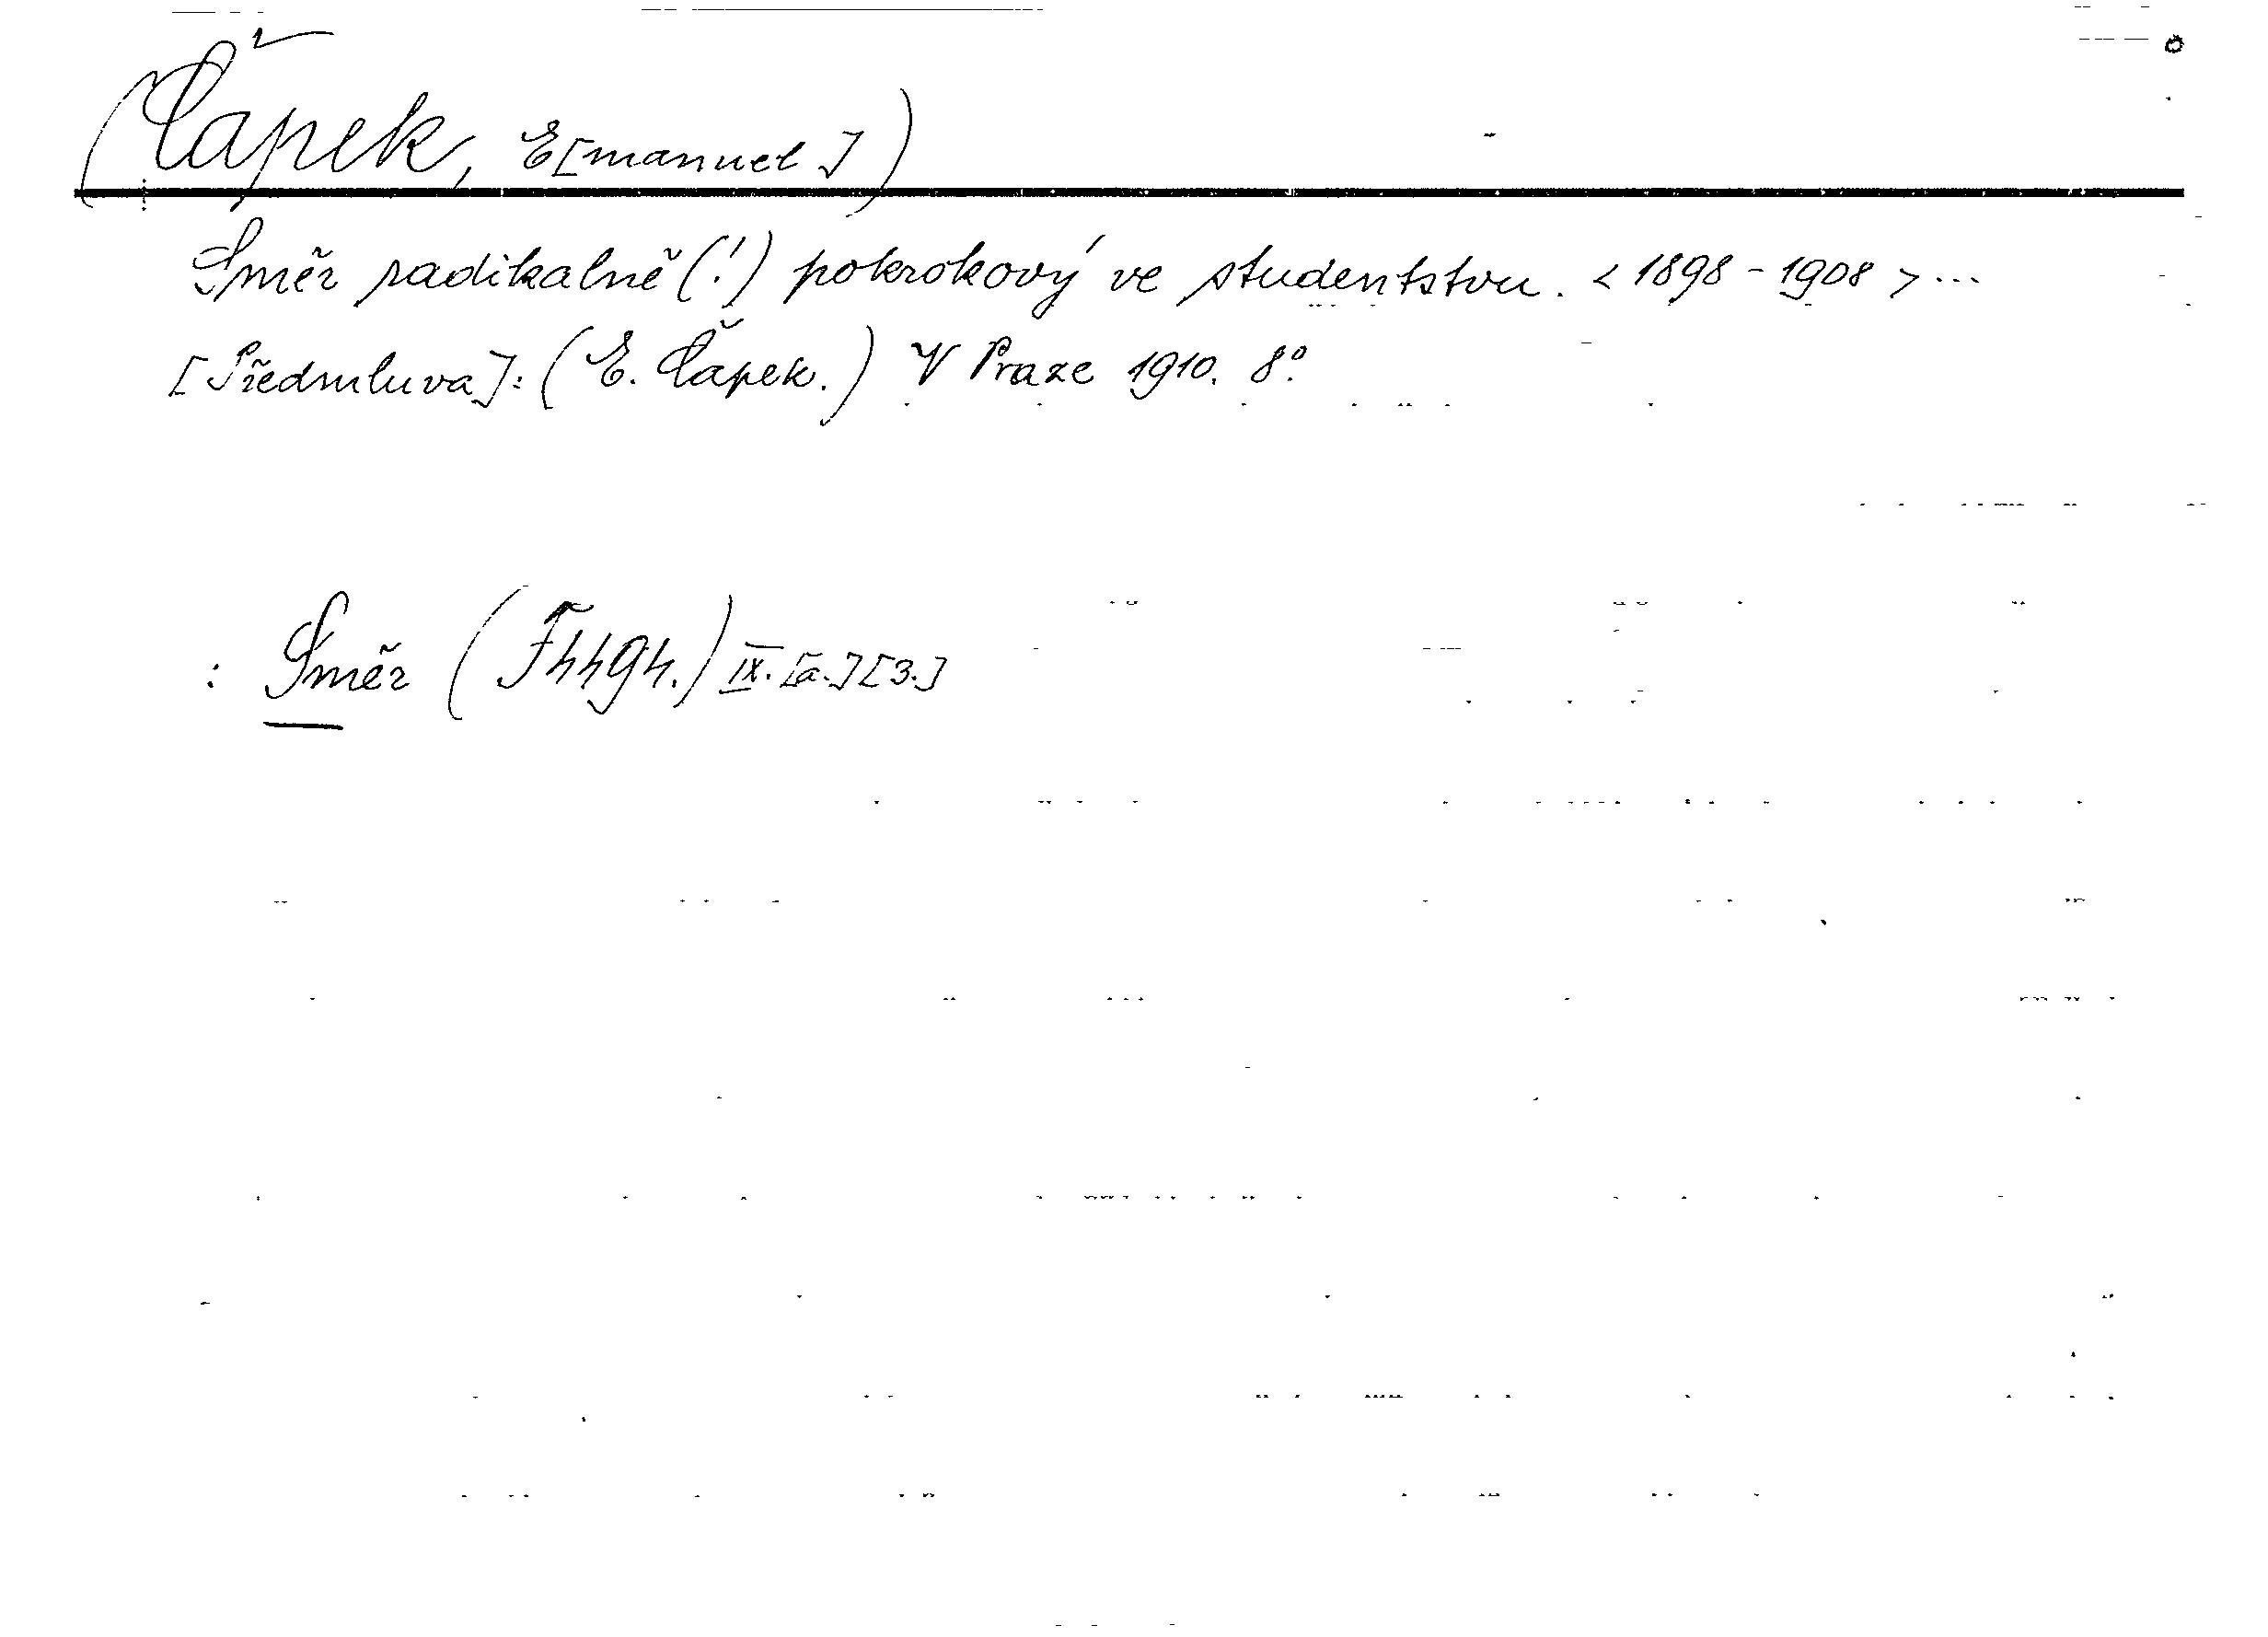 (Čapek, E[manuel])
Směr radikalně (!) pokrokový ve studentstvu. < 1898 - 1908 > ...
[Předmluva]: (E. Čapek.) V Praze 1910. 8º.
: Směr ( ) IX. [a.] [3.]